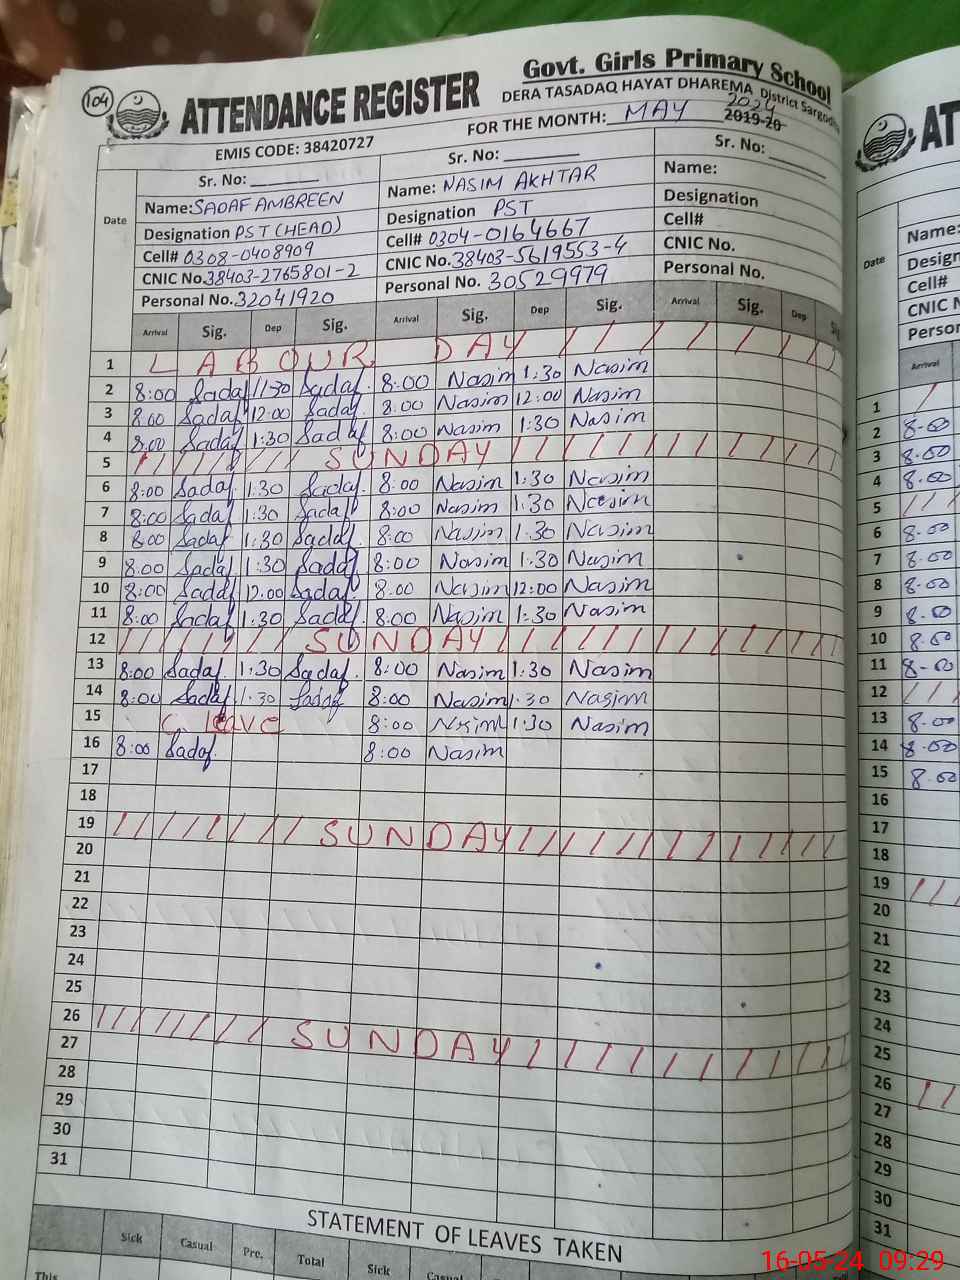 104
ATTENDANCE REGISTER
Govt. Girls Primary School
DERA TASADAQ HAYAT DHAREMA District Sargodha
EMIS CODE: 38420727
FOR THE MONTH: MAY 2024 2019-20
Date
Sr. No: Sr. No: Sr. No:
Name: SADAF AMBREEN Name: NASIM AKHTAR Name:
Designation PST (HEAD) Designation PST Designation
Cell# 0308-0408909 Cell# 0304-0164667 Cell#
CNIC No. 38403-2765801-2 CNIC No. 38403-5619553-4 CNIC No.
Personal No. 32041920 Personal No. 30529979 Personal No.
Arrival Sig. Dep Sig. Arrival Sig. Dep Sig. Arrival Sig. Dep Sig.
1 LABOUR DAY
2 8:00 Sadaf 1:30 Sadaf 8:00 Nasim 1:30 Nasim
3 8:00 Sadaf 12:00 Sadaf 8:00 Nasim 12:00 Nasim
4 8:00 Sadaf 1:30 Sadaf 8:00 Nasim 1:30 Nasim
5 SUNDAY
6 8:00 Sadaf 1:30 Sadaf 8:00 Nasim 1:30 Nasim
7 8:00 Sadaf 1:30 Sadaf 8:00 Nasim 1:30 Nasim
8 8:00 Sadaf 1:30 Sadaf 8:00 Nasim 1:30 Nasim
9 8:00 Sadaf 1:30 Sadaf 8:00 Nasim 1:30 Nasim
10 8:00 Sadaf 12:00 Sadaf 8:00 Nasim 12:00 Nasim
11 8:00 Sadaf 1:30 Sadaf 8:00 Nasim 1:30 Nasim
12 SUNDAY
13 8:00 Sadaf 1:30 Sadaf 8:00 Nasim 1:30 Nasim
14 8:00 Sadaf 1:30 Sadaf 8:00 Nasim 1:30 Nasim
15 C. leave 8:00 Nasim 1:30 Nasim
16 8:00 Sadaf 8:00 Nasim
17
18
19 SUNDAY
20
21
22
23
24
25
26 SUNDAY
27
28
29
30
31
STATEMENT OF LEAVES TAKEN
Sick Casual Pre. Total Sick Casual
This
AT
Date
Name:
Cell#
CNIC N
Arrival
1
2 8-00
3 8.00
4 8.00
5
6 8.00
7 8.00
8 8.00
9 8.00
10 8.00
11 8-00
12
13 8.00
14 8.00
15 8.00
16
17
18
19
20
21
22
23
24
25
26
27
28
29
30
31
16-05-24 09:29